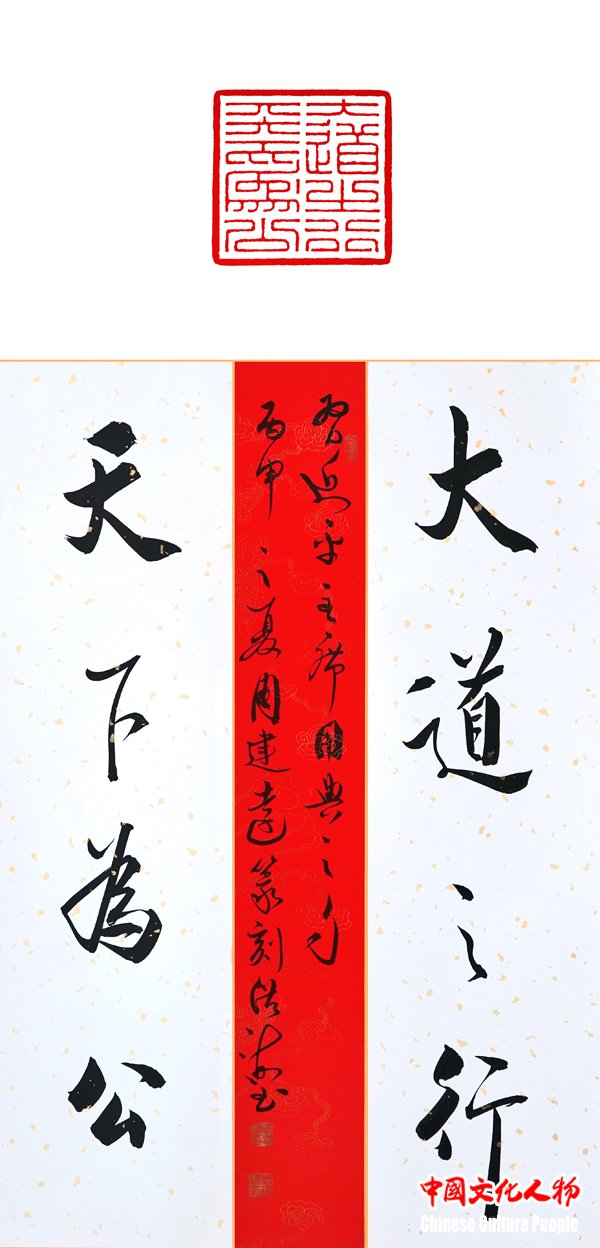 大道之行
天下為公
大道之行
習近平主席用典之句
丙申之夏周建遠篆刻書
天下為公
中國文化人物
Chinese Culture People